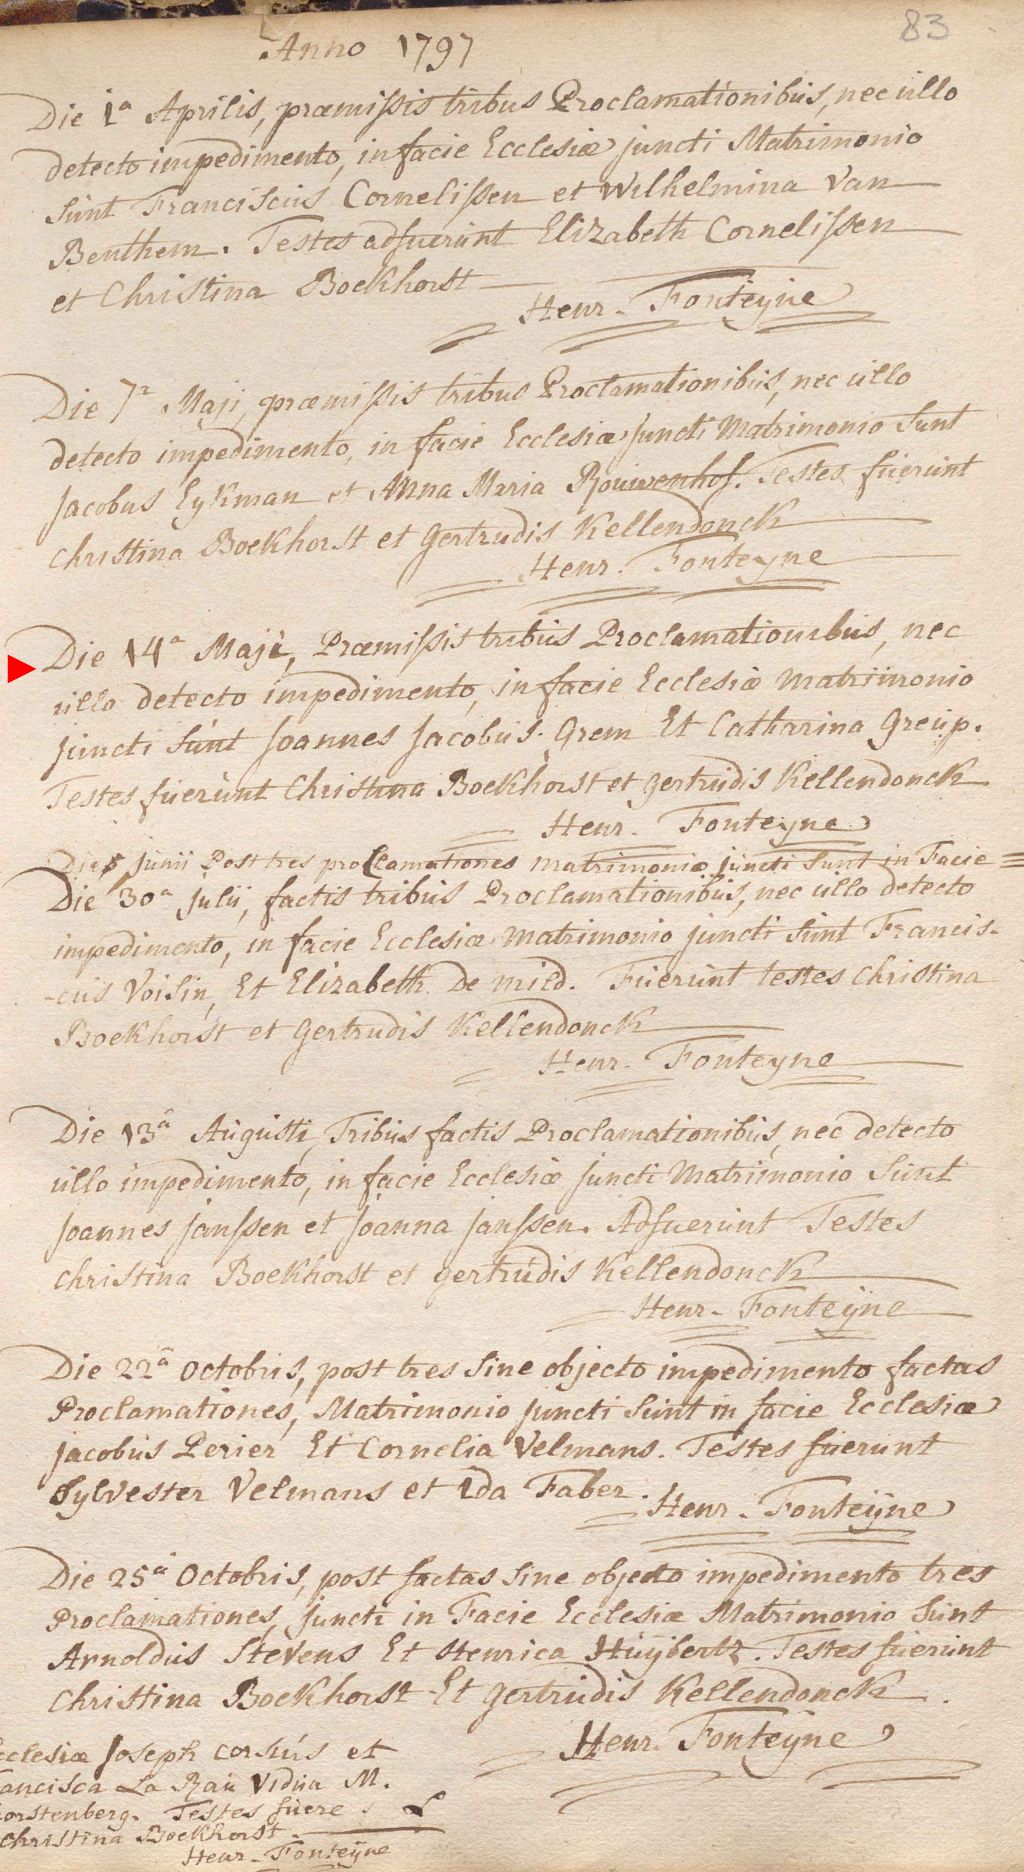 83
Anno 1797
Die 1a Aprilis, præmissis tribus Proclamationibus, nec ullo
detecto impedimento, in facie Ecclesiæ juncti Matrimonio
sunt Franciscus Cornelissen et Wilhelmina Van
Benthem. Testes adfuerunt Elizabeth Cornelissen
et Christina Boekhorst
Henr. Fonteyne
Die 7a Maji, præmissis tribus Proclamationibus, nec ullo
detecto impedimento, in facie Ecclesiæ juncti Matrimonio Sunt
Jacobus Eykman et Anna Maria Rouwenhof. Testes fuerunt
Christina Boekhorst et Gertrudis Kellendonck
Henr. Fonteyne
Die 14a Maji, Præmissis tribus Proclamationibus, nec
ullo detecto impedimento, in facie Ecclesiæ Matrimonio
juncti Sunt Joannes Jacobus Grem Et Catharina Greup.
Testes fuerunt Christina Boekhorst et Gertrudis Kellendonck
Henr. Fonteyne
Die Junii Post tres proclamationes matrimonio juncti Sunt in Facie =
Die 30a Julii, factis tribus Proclamationibus, nec ullo detecto
impedimento, in facie Ecclesiæ Matrimonio juncti Sunt Francis-
-cus Voisin, Et Elizabeth De Mild. Fuerunt testes Christina
Boekhorst et Gertrudis Kellendonck
Henr. Fonteyne
Die 13a Augusti, Tribus factis Proclamationibus, nec detecto
ullo impedimento, in facie Ecclesiæ juncti Matrimonio Sunt
Joannes Janssen et Joanna Janssen. Adfuerunt Testes
Christina Boekhorst et Gertrudis Kellendonck
Henr. Fonteÿne
Die 22a Octobris, post tres Sine objecto impedimento factas
Proclamationes, Matrimonio juncti Sunt in facie Ecclesiæ
Jacobus Perier Et Cornelia Velmans. Testes fuerunt
Sylvester Velmans et Ida Faber.
Henr. Fonteÿne
Die 25a Octobris, post factas Sine objecto impedimento tres
Proclamationes, juncti in Facie Ecclesiæ Matrimonio Sunt
Arnoldus Stevens Et Henrica Huÿbertz. Testes fuerunt
Christina Boekhorst Et Gertrudis Kellendonck.
Henr. Fonteÿne
cclesiæ Joseph Corsus et
ancisca La Rau Vidua M.
orstenberg. Testes fuere
Christina Boekhorst.
Henr. Fonteÿne